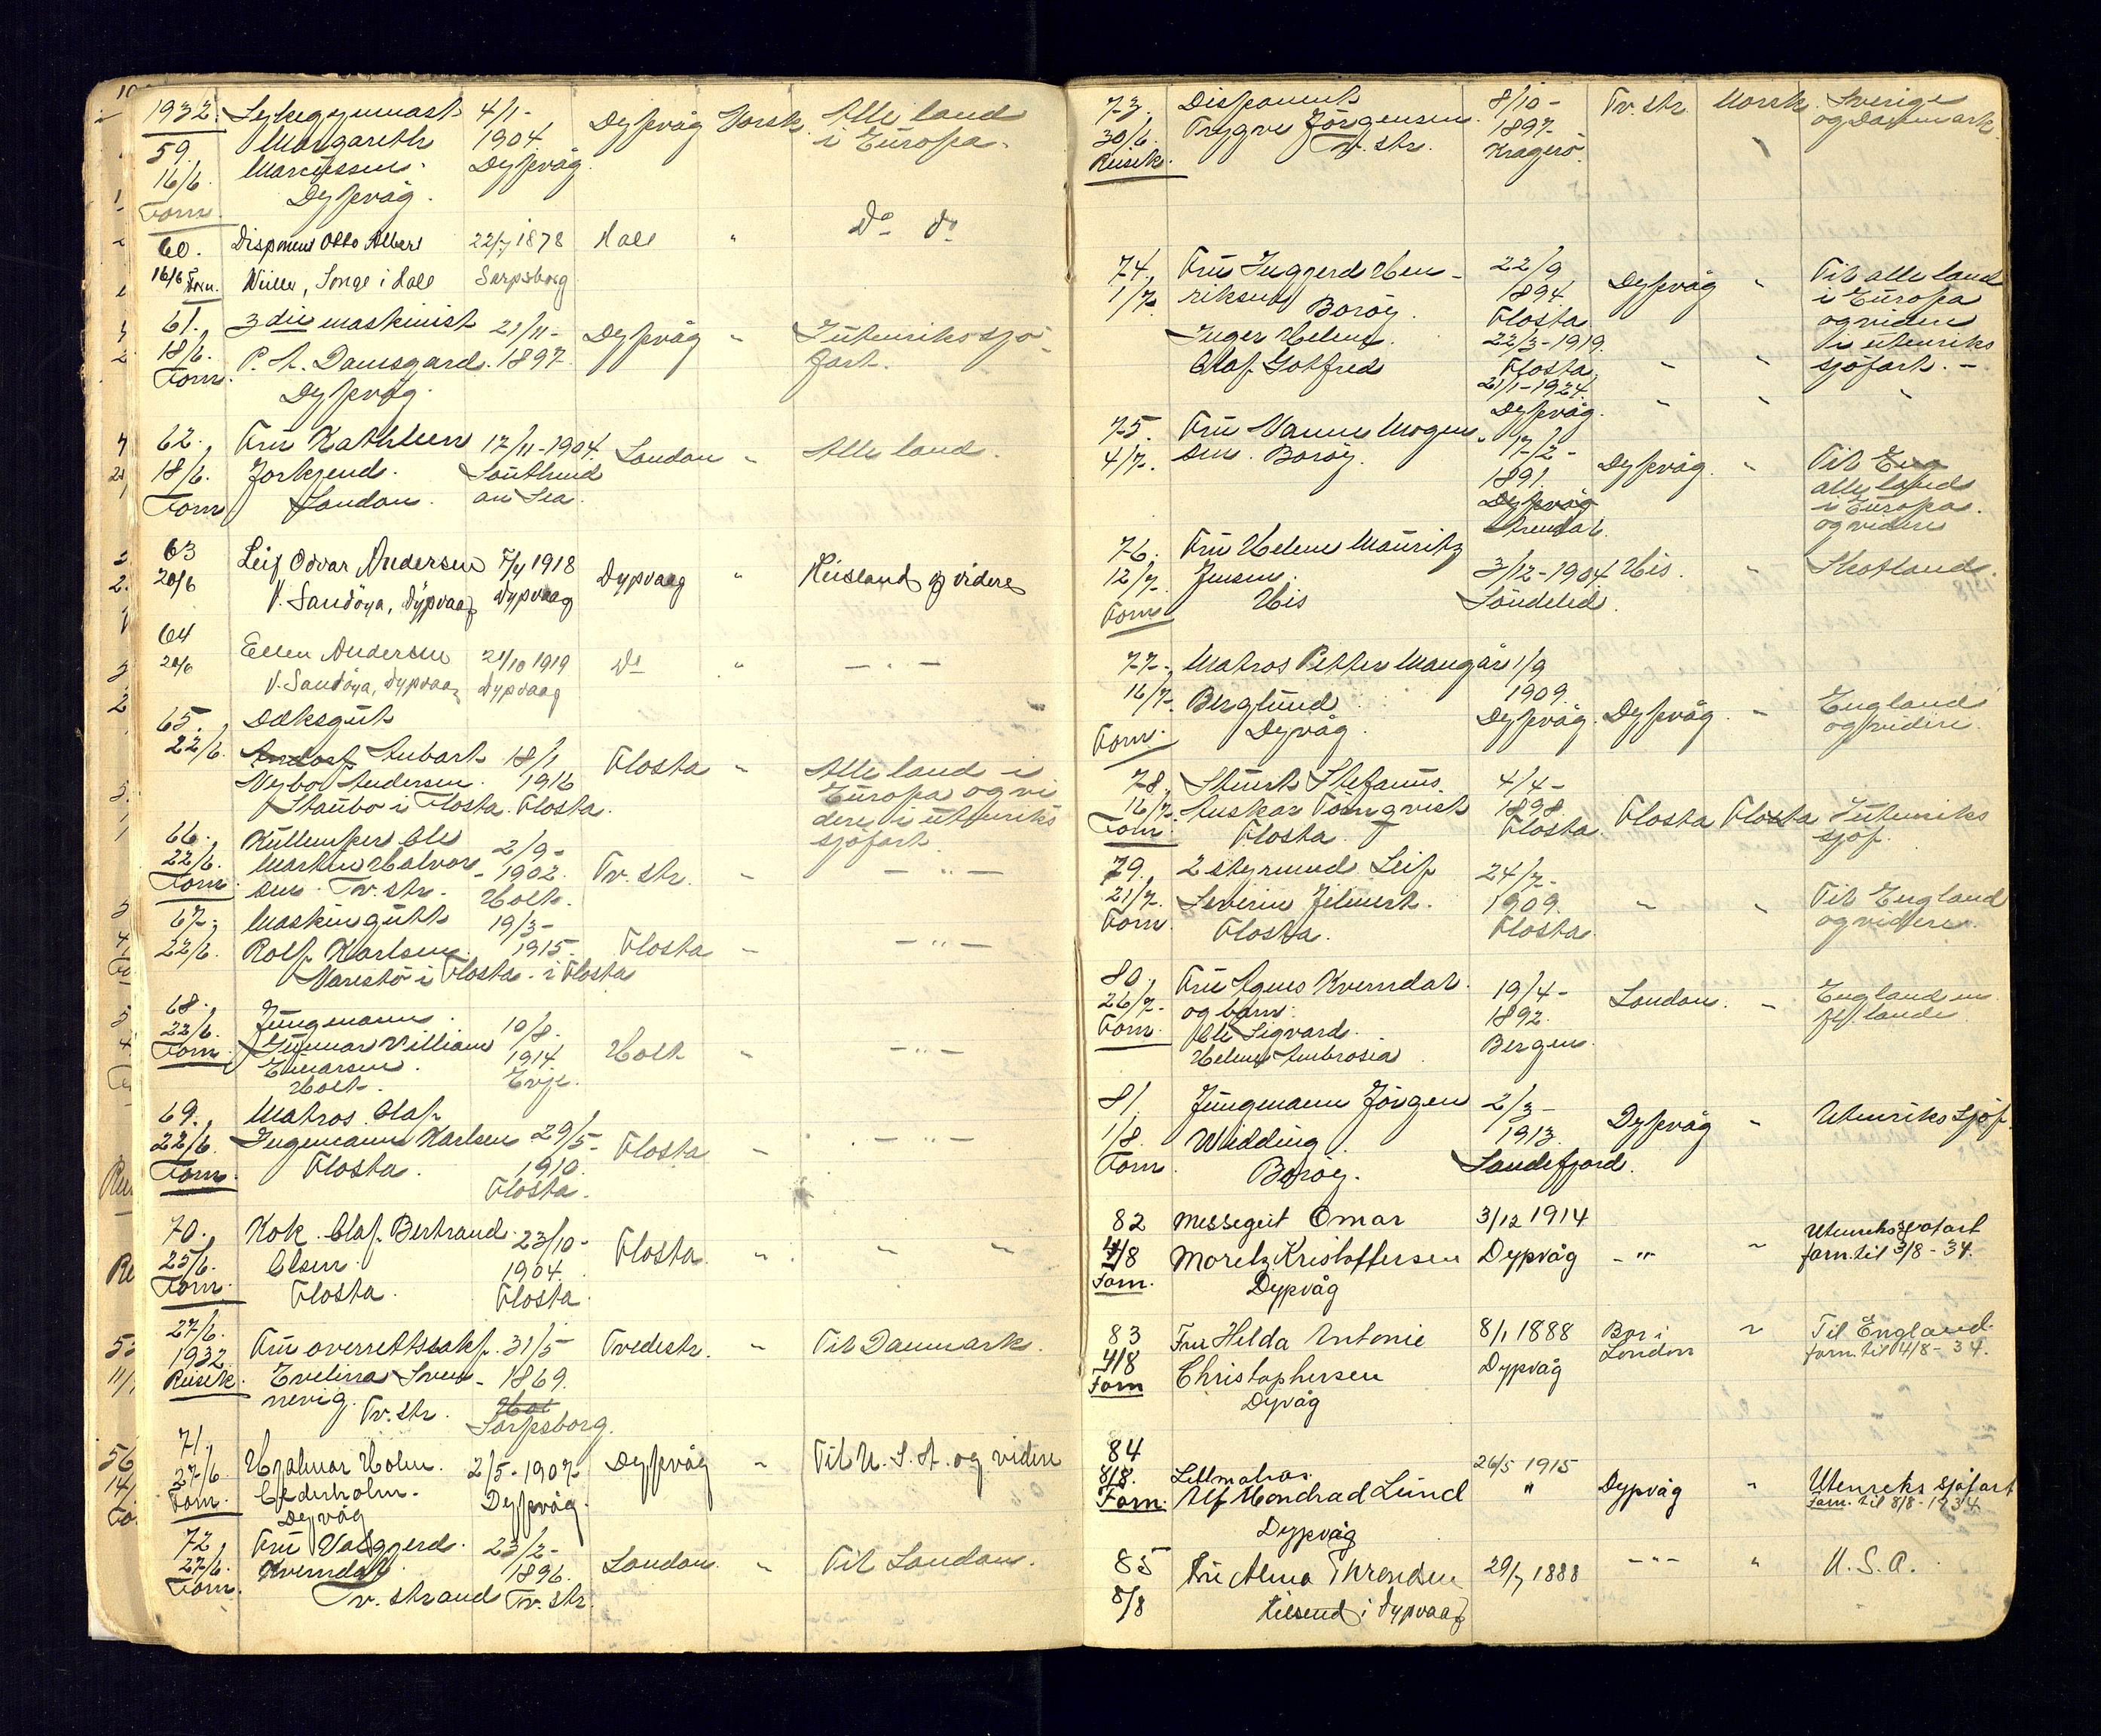 1932. Sykegymnast 4/1- Dypvåg Norsk. Alle land
59. Margareth 1904. i Europa.
16/6. Marcussen. Dypvåg.
Forn. Dypvåg.
60. Disponent Otto Albert 22/7 1878 Holt " Do Do
16/6 Forn. Weiller, Songe i Holt Sarpsborg
61. 3die maskinist 21/11- Dypvåg " I utenrikssjö-
18/6. P. A. Damsgård. 1897. fart.
Forn. Dypvåg.
62. Fru Kathleen 17/11-1904. London " Alle land.
18/6. Southend
Forn London. on Sea.
63 Leif Odvar Andersen 7/4 1918 Dypvaag " Rusland og videre
20/6 V. Sandöya, Dypvaag Dypvaag
64 Ellen Andersen 21/10 1919 Do " — " —
20/6 V. Sandöya, Dypvaag Dypvaag
65. Dæksgut
22/6. Aubert 18/1 Flosta " Alle land i
Nybo Andersen. 1916 Europa og vi
Staubo i Flosta. Flosta. dere i utenriks
66. Kullemper Ole 2/9- sjöfart.
22/6. Martin Halvor- 1902. Tv.str. " — " —
Forn. sen. Tv. str. Holt.
67. Maskingutt 19/3-
22/6. Rolf Karlsen. 1915. Flosta " — " —
Narestö i Flosta. i Flosta
68. Jungmann. 10/8.
22/6. Gunnar Villiam 1914 Holt " — " —
Forn. Einarsen. Evje.
Holt.
69. Matros Olaf
22/6. Ingemann Karlsen 29/5- Flosta " — " —
Forn. Flosta. 1910.
Flosta.
70. Kok. Olaf Bertrand 23/10- Flosta. " " "
25/6. Olsen. 1904.
Forn. Flosta. Flosta.
27/6. Fru overrettssakf. 31/5- Tvedestr. " Til Danmark.
1932. Evelina Sven- 1869.
Reisek. nevig. Tv.str. Hol
Sarpsborg.
71. Hjalmar Holm. 2/5-1907 Dypvåg " Til U. S. A. og videre
27/6. Cederholm. Dypvåg.
Forn. Dyvåg
72, Fru Valgjerd. 23/2- London. " Til London.
27/6. Kverndal 1896.
Forn. Tv. strand Tv. str.
73. Disponent 8/10- Tv. str. Norsk. Sverige
30/6. Trygve Jörgensen. 1897. og Danmark.
Reisek. Tv. str. Kragerö.
74. Fru Inggerd Hen- 22/9 Dypvåg " Til alle land
1/7. riksen Boröy. 1894. i Europa
Flosta og videre
Inger Helene. 22/3-1919. i utenriks
Olaf Gotfred Flosta. " " sjöfart. -
21/1-1924.
Dypvåg. " " "
75. Fru Nanna Mogen- 17/2-
4/7. sen. Boröy. 1891. Dypvåg. " Til Eng
Dypvåg alle land
Arendal. i Europa.
og videre
76. Fru Helene Mauritz
12/7. Jensen. 3/12-1904. His. " Skotland.
Forn His Söndeled.
77. Matros Petter Mangår 1/9
16/7. Berglund 1909. England
Forn. Dyvåg. Dypvåg. Dypvåg. " og videre.
78. Stuert Stefanus 4/4-
16/7. Auskar Törnqvist 1898. Flosta Flosta I utenriks
Forn. Flosta. Flosta. sjöf.
79. 2 styrmand Leif 24/7-
21/7. Severin Jelmert. 1909. " " Til England
Forn. Flosta. Flosta. og videre.
80. Fru Agnes Kverndal. 19/4- London. " England m
26/7. og barn. 1892. fl. lande
Forn. Ole Sigvard. Bergen.
Helene Ambrosia
81. Jungmann Jörgen 2/3- Dypvåg " Utenriks sjöf.
1/8. Widding. 1913.
Forn. Boröy. Sandefjord.
82 Messegut Omar 3/12 1914 Utenriks sjöfart
4/8 Moretz Kristoffersen Dypvåg - " " forn. til 3/8-34.
Forn. Dypvåg
83 Fru Hilda Antonie 8/1 1888 Bor i " Til England.
4/8 Christophersen Dyppvåg London forn. til 4/8-34.
Forn Dyvåg
84 26/5 1915
8/8. Lettmatros " Dypvåg " Utenriks sjöfart
Forn. Ulf Mondrad Lund forn. til 8/8-1934.
Dyppvåg
85 Fru Alma Throndsen 29/7 1888 - " - " U. S. A.
8/8 i Dypvaag